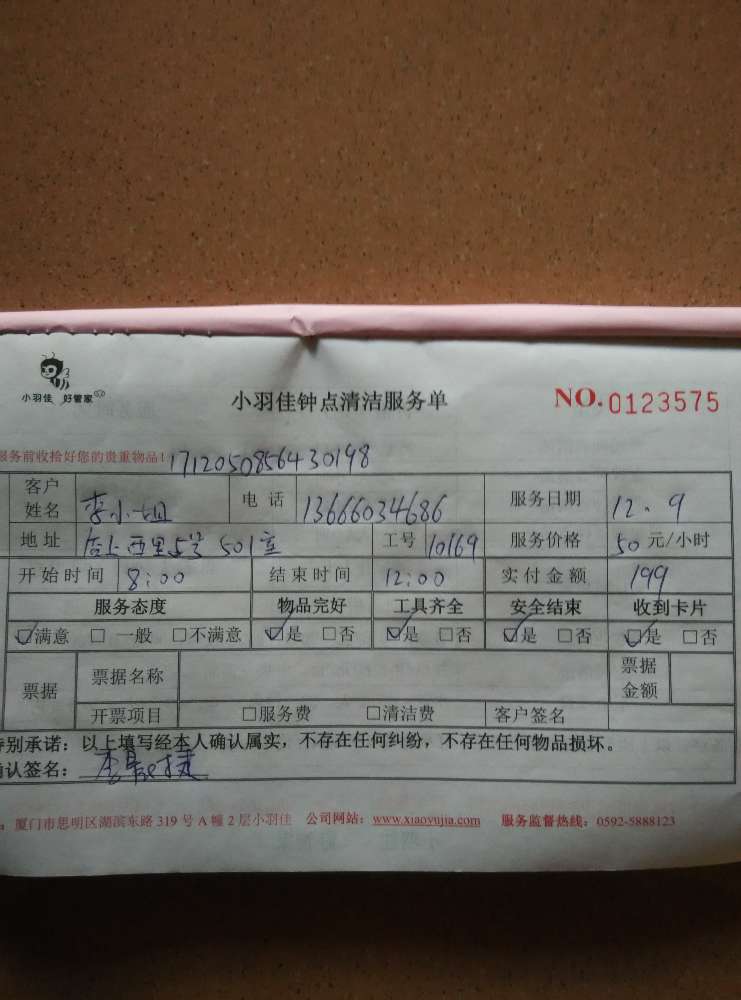 小羽佳 好管家
小羽佳钟点清洁服务单
NO.0123575
服务前收拾好您的贵重物品！171205085643 0198
客户姓名 李小姐 电话 13666034686 服务日期 12.9
地址 后上西里5号501室 工号 10169 服务价格 50元/小时
开始时间 8:00 结束时间 12:00 实付金额 199
服务态度 物品完好 工具齐全 安全结束 收到卡片
☑满意 □一般 □不满意 ☑是 □否 ☑是 □否 ☑是 □否 ☑是 □否
票据 票据名称 票据金额
开票项目 □服务费 □清洁费 客户签名
特别承诺：以上填写经本人确认属实，不存在任何纠纷，不存在任何物品损坏。
确认签名：李
：厦门市思明区湖滨东路319号A幢2层小羽佳 公司网站：www.xiaoyujia.com 服务监督热线：0592-5888123